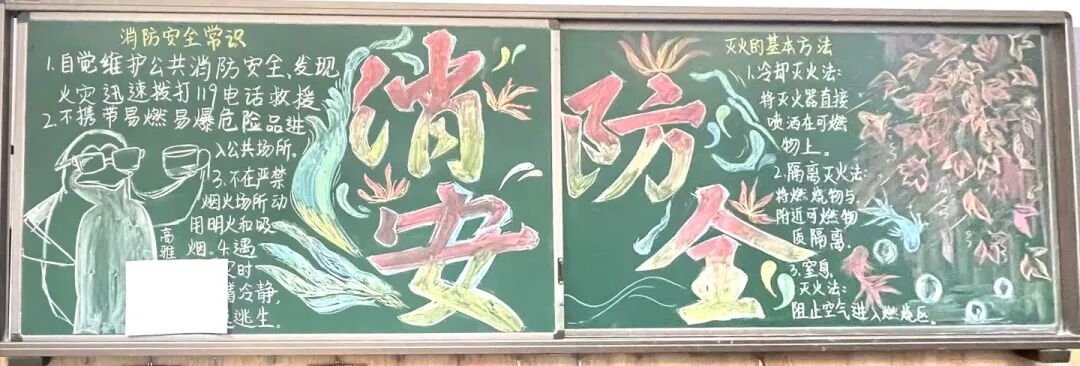 消防安全常识
1.自觉维护公共消防安全、发现
火灾迅速拨打119电话救援
2.不携带易燃易爆危险品进
入公共场所。
3.不在严禁
烟火场所动
用明火和吸
烟。4.遇
灾时
着冷静,
逃生。
高雅
消防
安全
灭火的基本方法
1.冷却灭火法:
将灭火器直接
喷洒在可燃
物上。
2.隔离灭火法:
将燃烧物与
附近可燃物
质隔离.
3.窒息
灭火法:
阻止空气进入燃烧区.